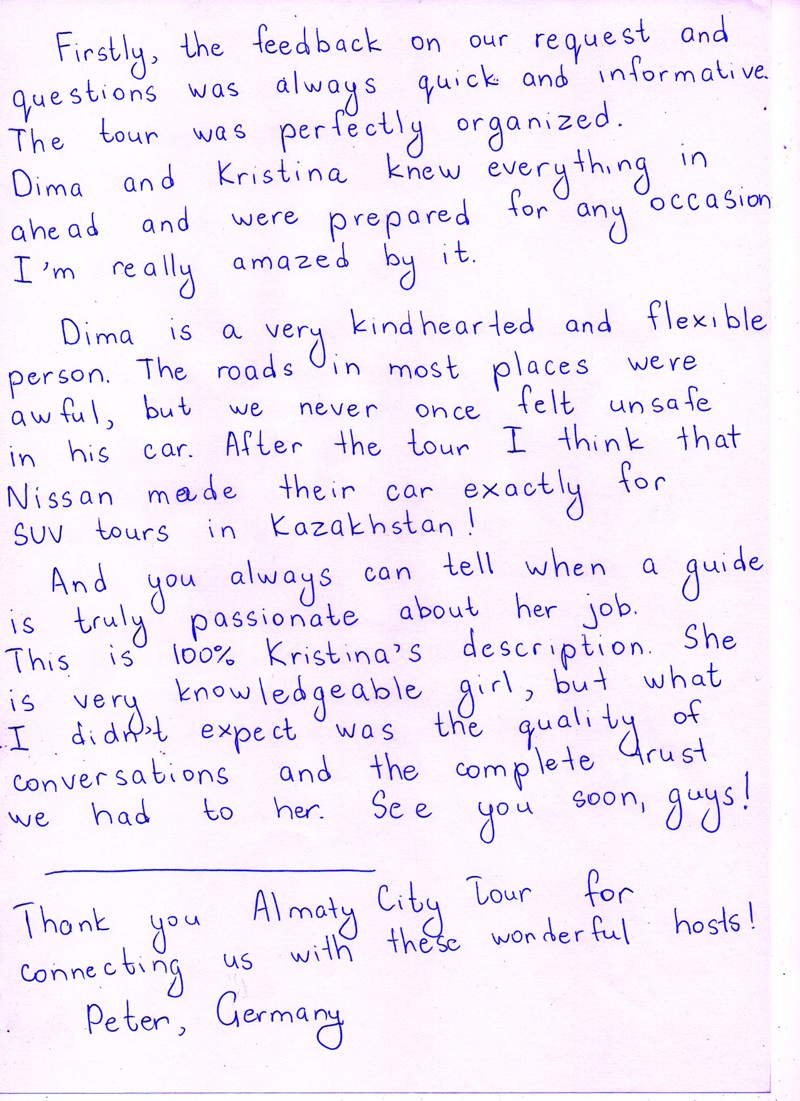 Firstly, the feedback on our request and
questions was always quick and informative.
The tour was perfectly organized.
Dima and Kristina knew everything in
ahead and were prepared for any occasion
I'm really amazed by it.
Dima is a very kindhearted and flexible
person. The roads in most places were
awful, but we never once felt unsafe
in his car. After the tour I think that
Nissan made their car exactly for
SUV tours in Kazakhstan!
And you always can tell when a guide
is truly passionate about her job.
This is 100% Kristina's description. She
is very knowledgeable girl, but what
I didn't expect was the quality of
conversations and the complete trust
we had to her. See you soon, guys!
Thank you Almaty City Tour for
connecting us with these wonderful hosts!
Peter, Germany